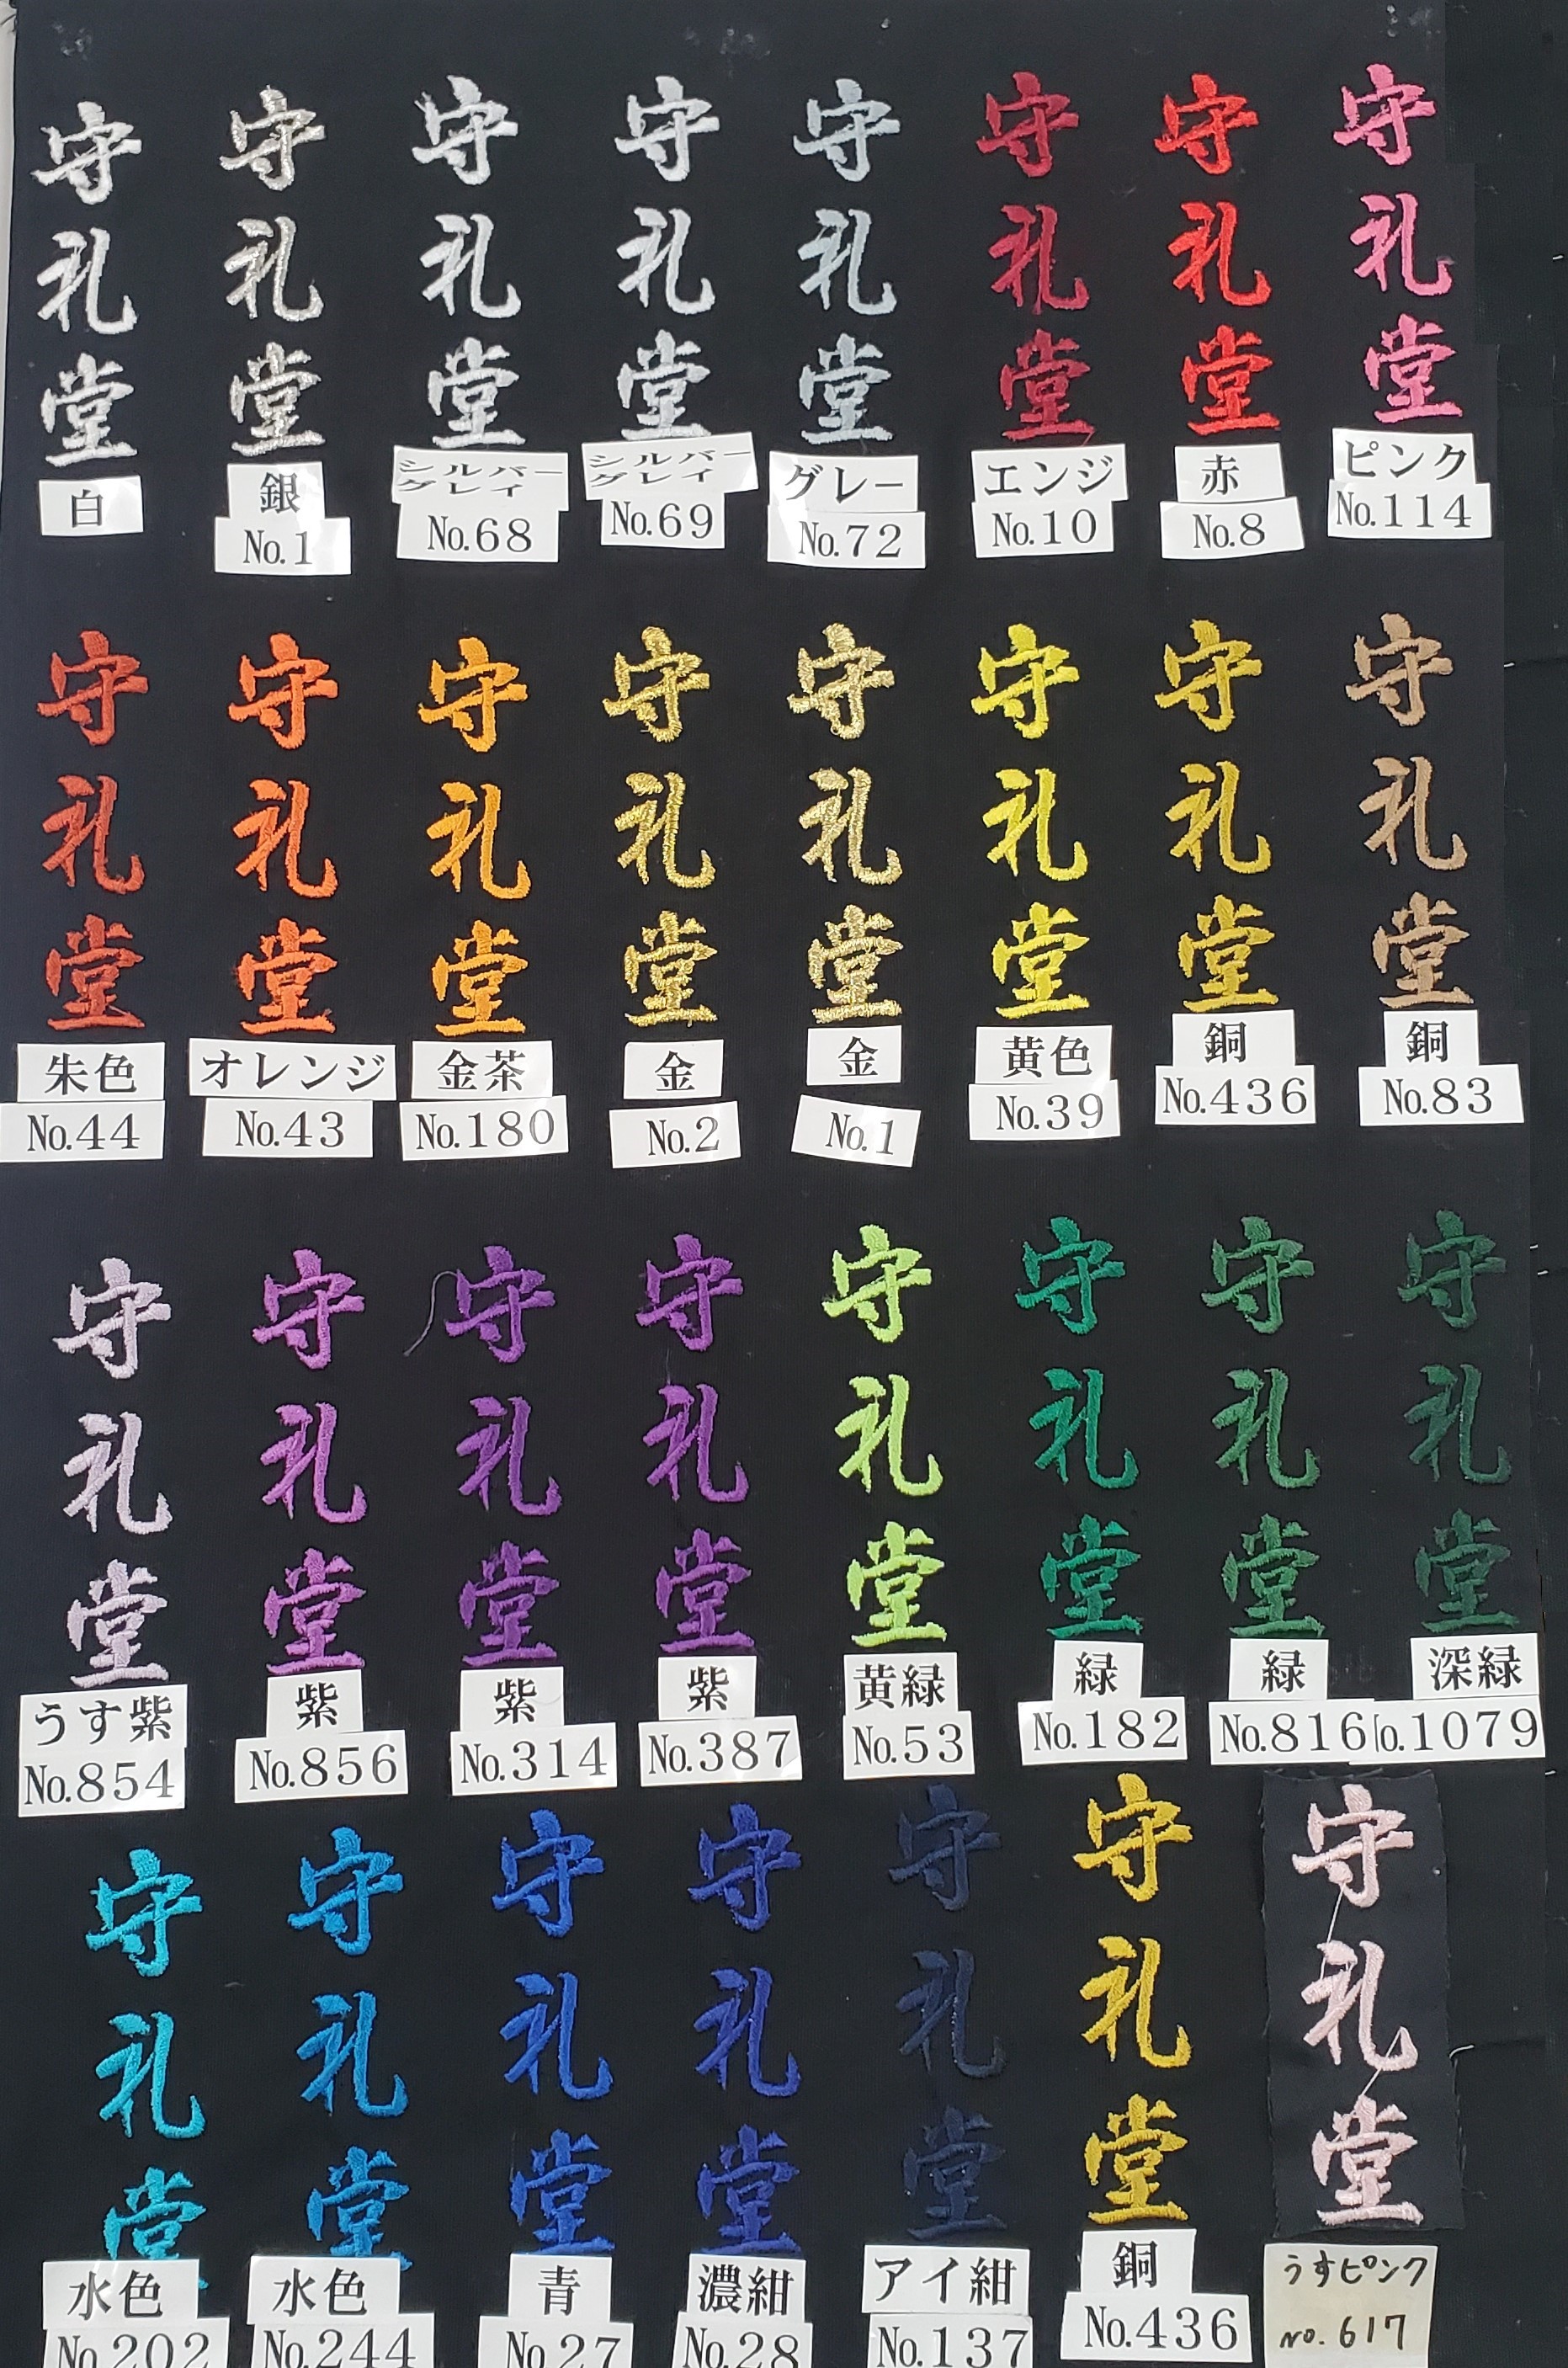 守礼堂
白
守礼堂
銀
No.1
守礼堂
シルバー
グレイ
No.68
守礼堂
シルバー
グレイ
No.69
守礼堂
グレー
No.72
守礼堂
エンジ
No.10
守礼堂
赤
No.8
守礼堂
ピンク
No.114
守礼堂
朱色
No.44
守礼堂
オレンジ
No.43
守礼堂
金茶
No.180
守礼堂
金
No.2
守礼堂
金
No.1
守礼堂
黄色
No.39
守礼堂
銅
No.436
守礼堂
銅
No.83
守礼堂
うす紫
No.854
守礼堂
紫
No.856
守礼堂
紫
No.314
守礼堂
紫
No.387
守礼堂
黄緑
No.53
守礼堂
緑
No.182
守礼堂
緑
No.816
守礼堂
深緑
o.1079
守礼堂
水色
No.202
守礼堂
水色
No.244
守礼堂
青
No.27
守礼堂
濃紺
No.28
守礼堂
アイ紺
No.137
守礼堂
銅
No.436
守礼堂
うすピンク
No.617